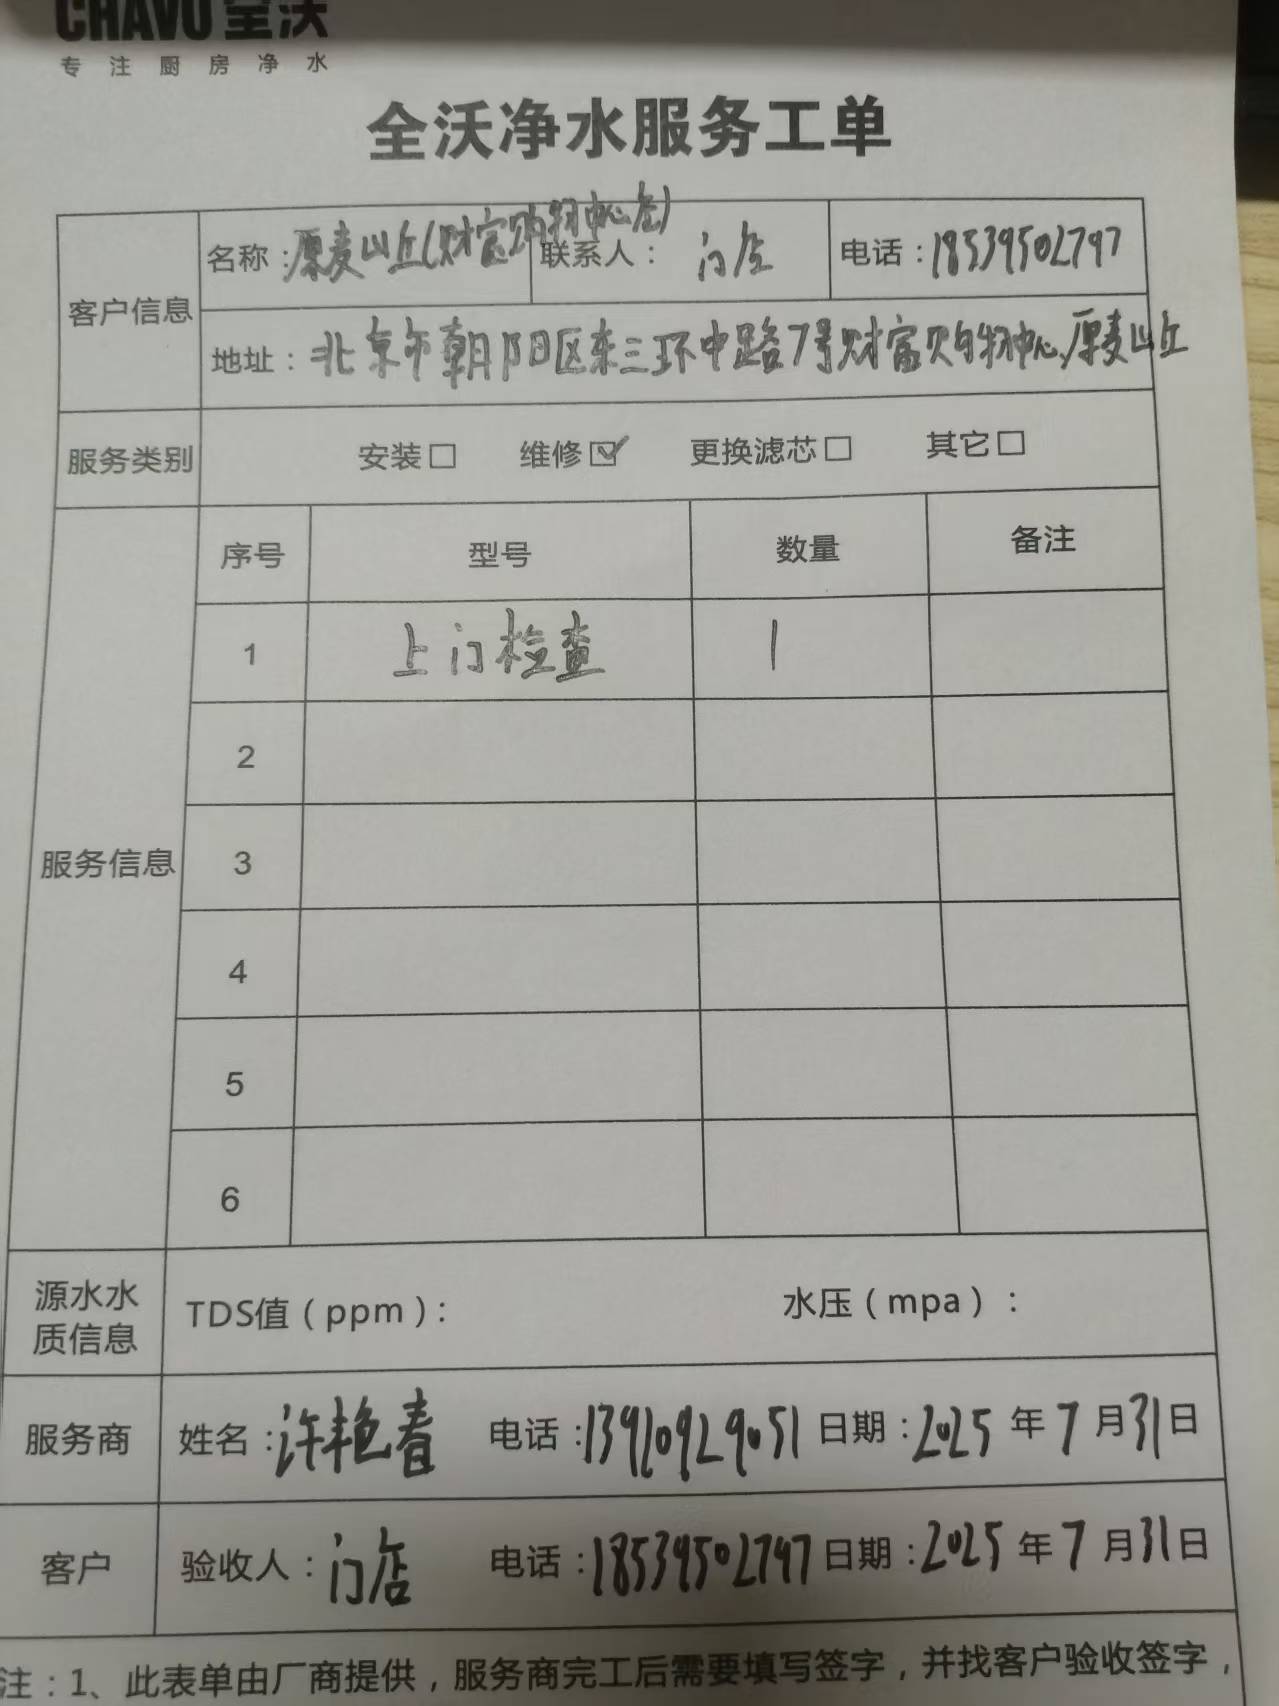 CHAVO 全沃
专注厨房净水
全沃净水服务工单
客户信息 名称：原麦山丘(财富购物中心店) 联系人：门店 电话：18539502797
地址：北京市朝阳区东三环中路7号财富购物中心,原麦山丘
服务类别 安装□ 维修☑ 更换滤芯□ 其它□
服务信息 序号 型号 数量 备注
1 上门检查 1
2
3
4
5
6
源水水质信息 TDS值（ppm）： 水压（mpa）：
服务商 姓名：许艳春 电话：13910929051 日期：2025年7月31日
客户 验收人：门店 电话：18539502797 日期：2025年7月31日
注：1、此表单由厂商提供，服务商完工后需要填写签字，并找客户验收签字，